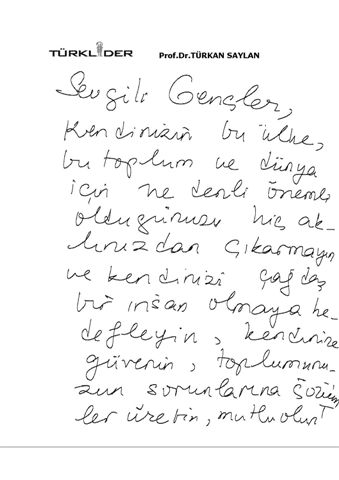 TÜRKLİDER Prof.Dr.TÜRKAN SAYLAN
Sevgili Gençler,
Kendinizin bu ülke,
bu toplum ve dünya
için ne denli önemli
olduğunuzu hiç ak-
lınızdan çıkarmayın
ve kendinizi çağdaş
bir insan olmaya he-
defleyin, kendinize
güvenin, toplumunu-
zun sorunlarına çözüm-
ler üretin, mutlu olun!